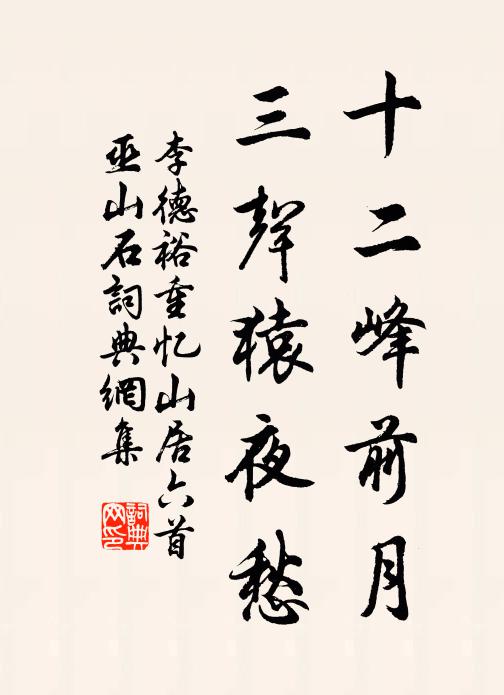 十二峰前月
三聲猿夜愁
李德裕重忆山居六首
巫山石詞典網集
詞典网印